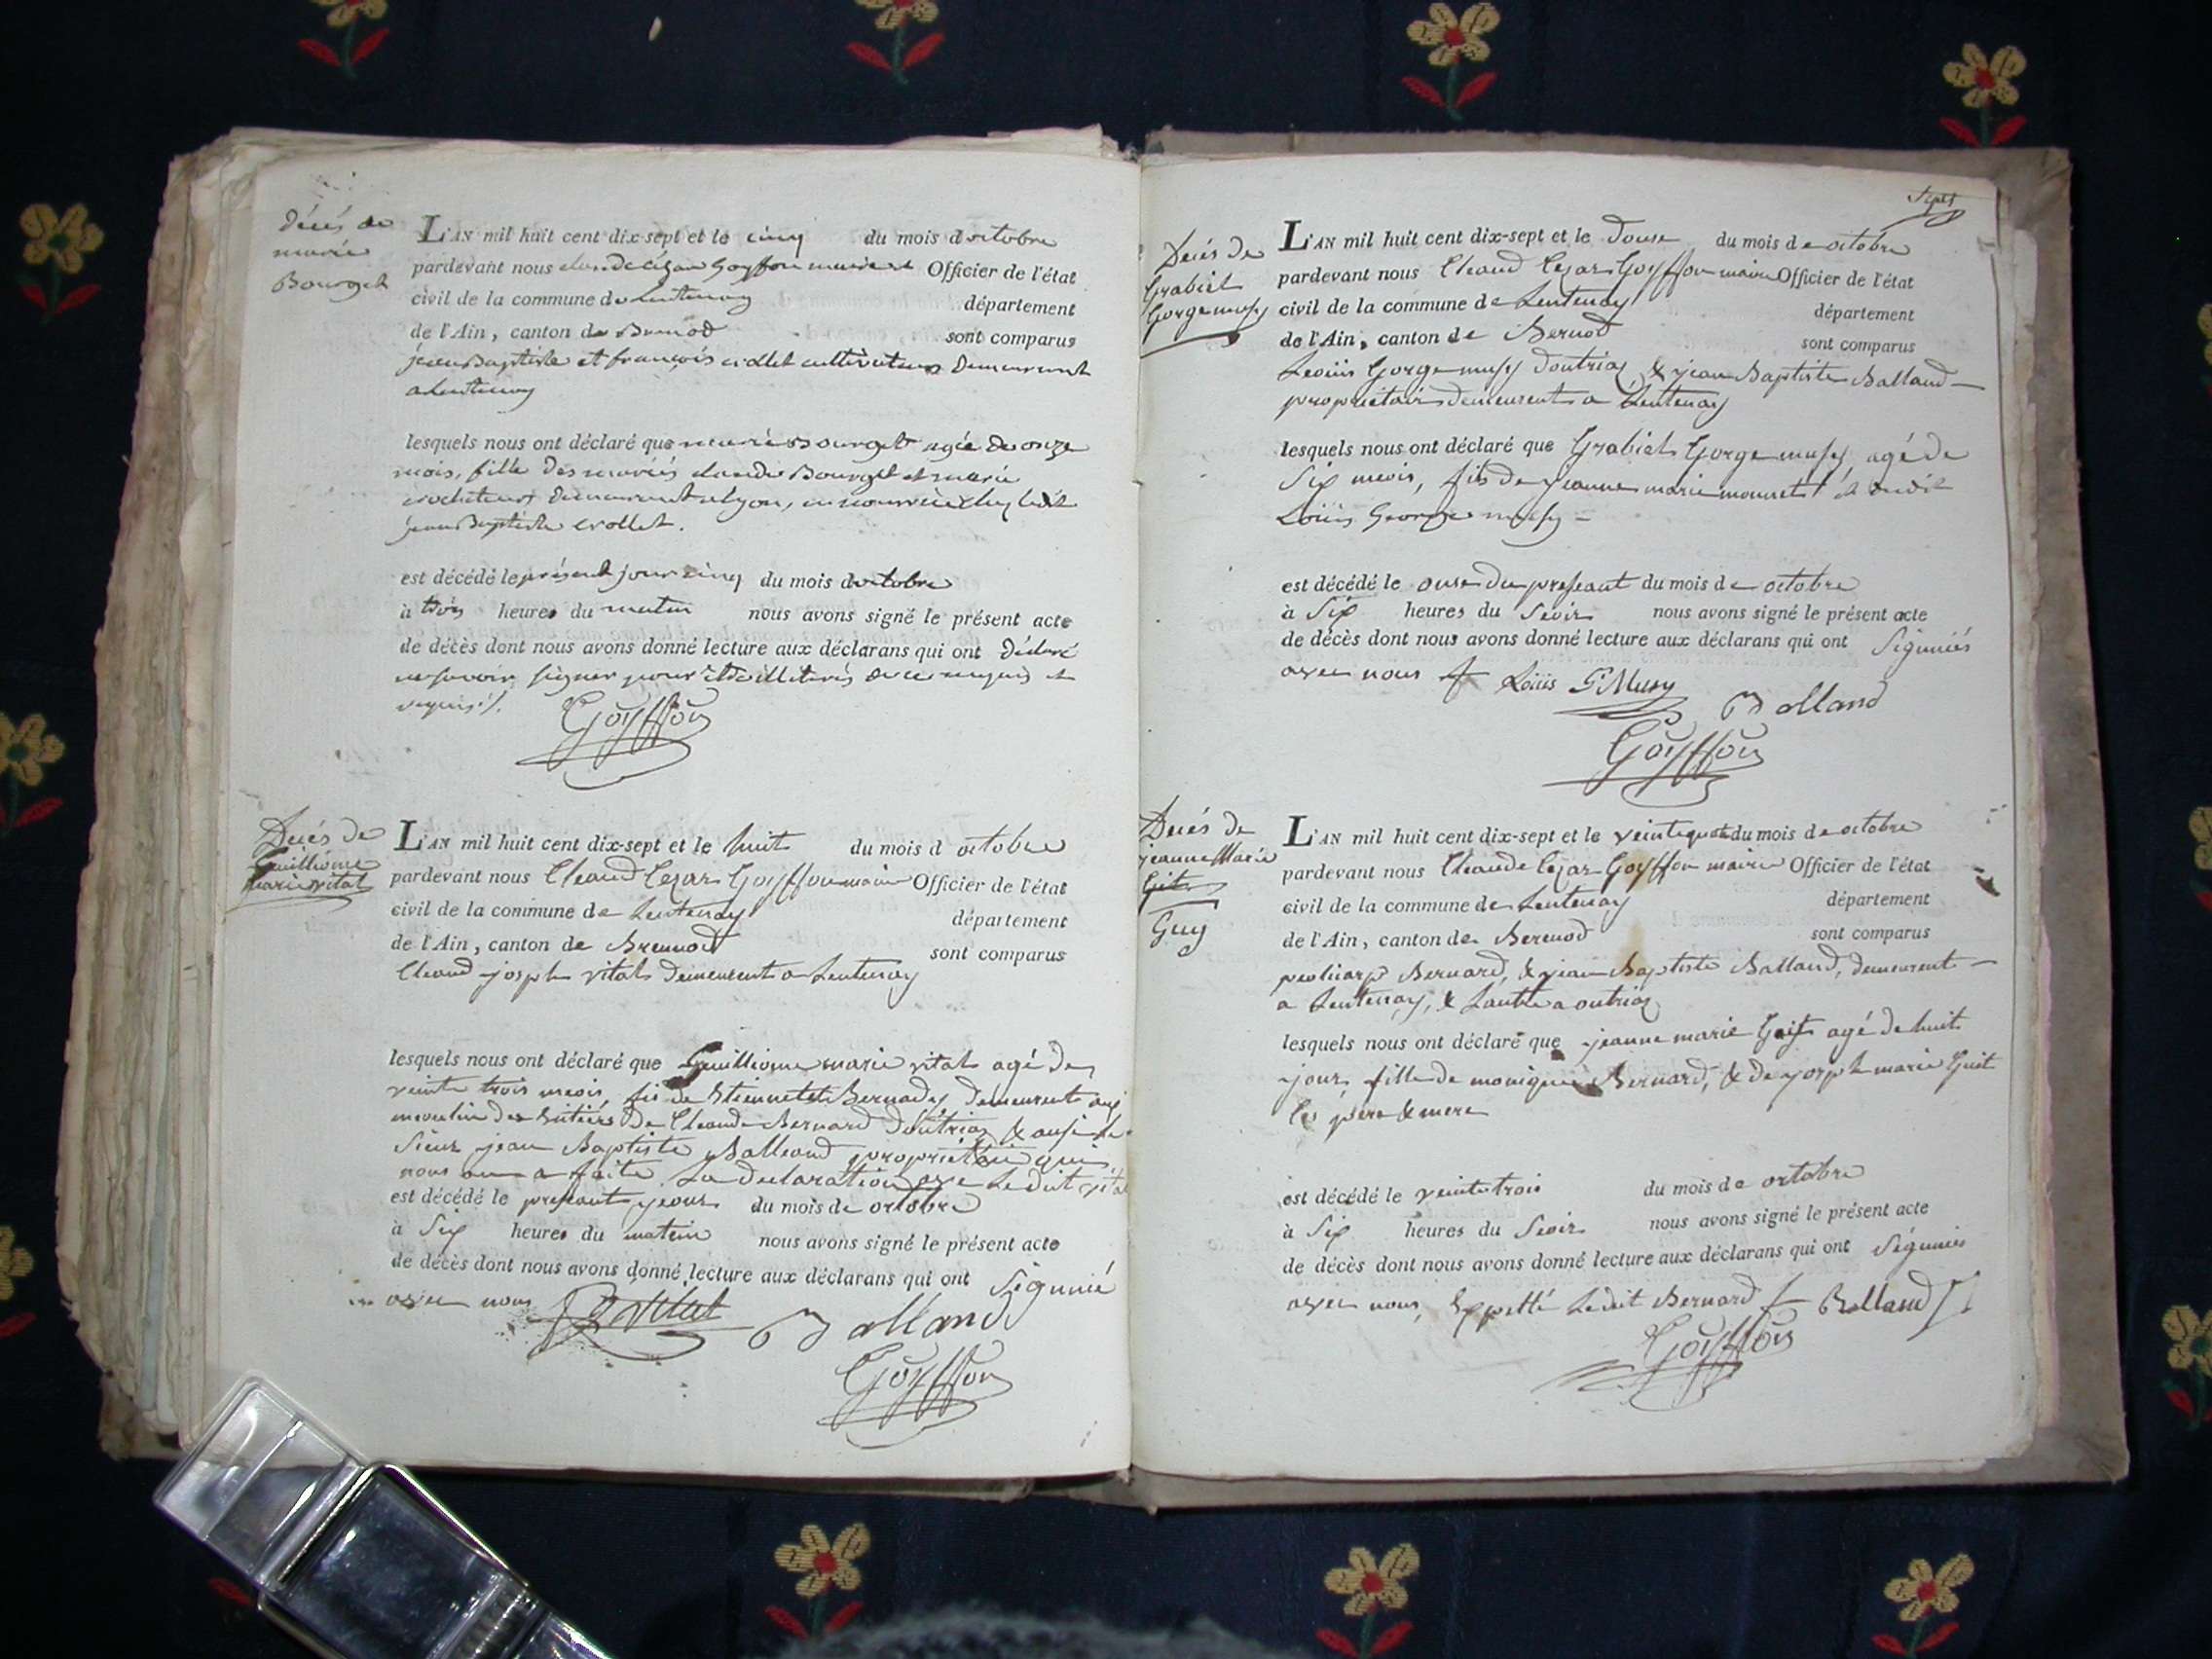 décés de
marie
Bourget
L'AN mil huit cent dix-sept et le cinq du mois doctobre
pardevant nous claude Cézar Goyffon maire et Officier de l'état
civil de la commune de Lentenay département
de l'Ain, canton de Brenod sont comparus
jean Baptiste et françois crollet cultivateurs demeurant
a Lentenay
lesquels nous ont déclaré que marie Bourget agée de onze
mois, fille des mariés claude Bourget et marie
demeurant a Lyon, en nourrice chez ledit
jean Baptiste crollet.
est décédé le présent jour cinq du mois doctobre
à trois heures du matin nous avons signé le présent acte
de décès dont nous avons donné lecture aux déclarans qui ont déclaré
ne savoir signer pour être illiterés de ce enquis et
requis ./.
Goÿffon
Decés de
Guilliome
marie vital
L'AN mil huit cent dix-sept et le huit du mois d octobre
pardevant nous Cleaud Cezar Goyffon maire Officier de l'état
civil de la commune de Lentenay département
de l'Ain, canton de Brennod sont comparus
Cleaud josph vital demeurent a Lentenay
lesquels nous ont déclaré que Guilliome marie vital agé de
veinte trois meois, fis de Etiennette Bernady demeurente aux
meoulin des de Cleaude Bernard Doutriaz & ausi le
Sieur jean Baptiste Balleand propriétaire qui
nous on a faite La declaration ave Le dit vital
est décédé le presant jeour du mois de octobre
à Six heures du matein nous avons signé le présent acte
de décès dont nous avons donné lecture aux déclarans qui ont Signnié
avec nous Vital Balland
Goÿffon
Sept
Decés de
Grabiel
Gorge musy
L'AN mil huit cent dix-sept et le Douse du mois de octobre
pardevant nous Cleaud Cezar Goyffon maire Officier de l'état
civil de la commune de Lentenay département
de l'Ain, canton de Bernod sont comparus
Leoüis Gorge musy Doutriaz & jean Baptiste Balland
propriétairs demeurents a Lentenay
lesquels nous ont déclaré que Grabiel Gorge musy agé de
Six meois, fils de jeanne marie monnet & dudit
Loüis George musy
est décédé le onse du presant du mois de octobre
à Six heures du Seoir nous avons signé le présent acte
de décès dont nous avons donné lecture aux déclarans qui ont Signniés
avec nous Loüis G Musy Balland
Goÿffon
Decés de
jeanne Marie
Guy
L'AN mil huit cent dix-sept et le veintequatre du mois de octobre
pardevant nous Cleaude Cezar Goyffon maire Officier de l'état
civil de la commune de Lentenay département
de l'Ain, canton de Berenod sont comparus
peolicarp Bernard, & jean Baptiste Balland, demeurent
a Lentenay, & Lautre a outriaz
lesquels nous ont déclaré que jeanne marie agé de huit
jours, fille de monique Bernard, & de josph marie Guit
les père & mere
est décédé le veintetrois du mois de octobre
à Six heures du Seoir nous avons signé le présent acte
de décès dont nous avons donné lecture aux déclarans qui ont Signnies
avec nous, Exepetté Le dit Bernard Balland
Goÿffon